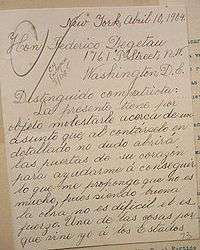 New York, Abril 10, 1904.
Hon. Federico Degetau
1761 P Street N.W.
Washington D.C.
Distinguido compatriota:
La presente tiene por
objeto molestarle acerca de un
asunto que al contárselo en
detallado no dudo abrirá
las puertas de su corazón
para ayudarme á conseguir
lo que me propongo que no es
mucho, pues siendo buena
la obra no difícil el es-
fuerzo. Una de las cosas por
que vine yo á los Estados